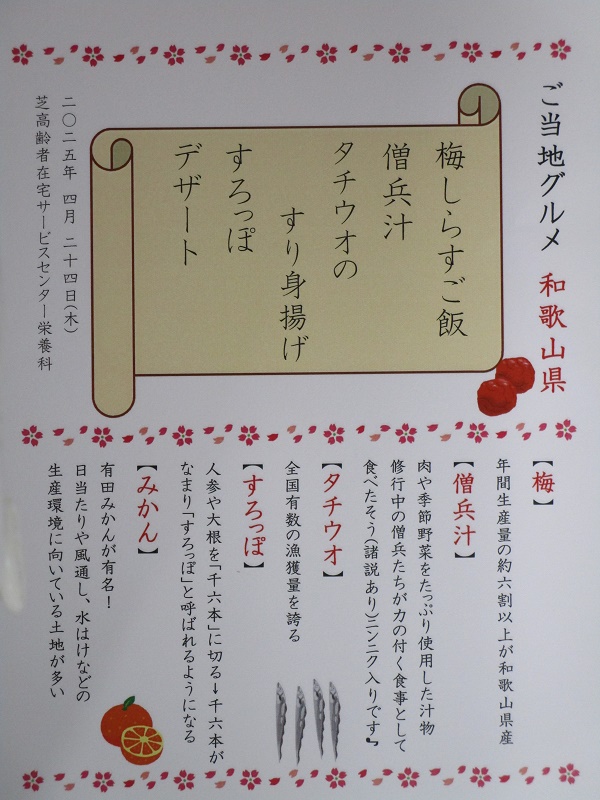 ご当地グルメ 和歌山県
梅しらすご飯
僧兵汁
タチウオの
すり身揚げ
すろっぽ
デザート
二〇二五年 四月 二十四日(木)
芝高齢者在宅サービスセンター栄養科
【梅】
年間生産量の約六割以上が和歌山県産
【僧兵汁】
肉や季節野菜をたっぷり使用した汁物
修行中の僧兵たちが力の付く食事として
食べたそう(諸説あり)ニンニク入りです♪
【タチウオ】
全国有数の漁獲量を誇る
【すろっぽ】
人参や大根を「千六本」に切る→千六本が
なまり「すろっぽ」と呼ばれるようになる
【みかん】
有田みかんが有名!
日当たりや風通し、水はけなどの
生産環境に向いている土地が多い